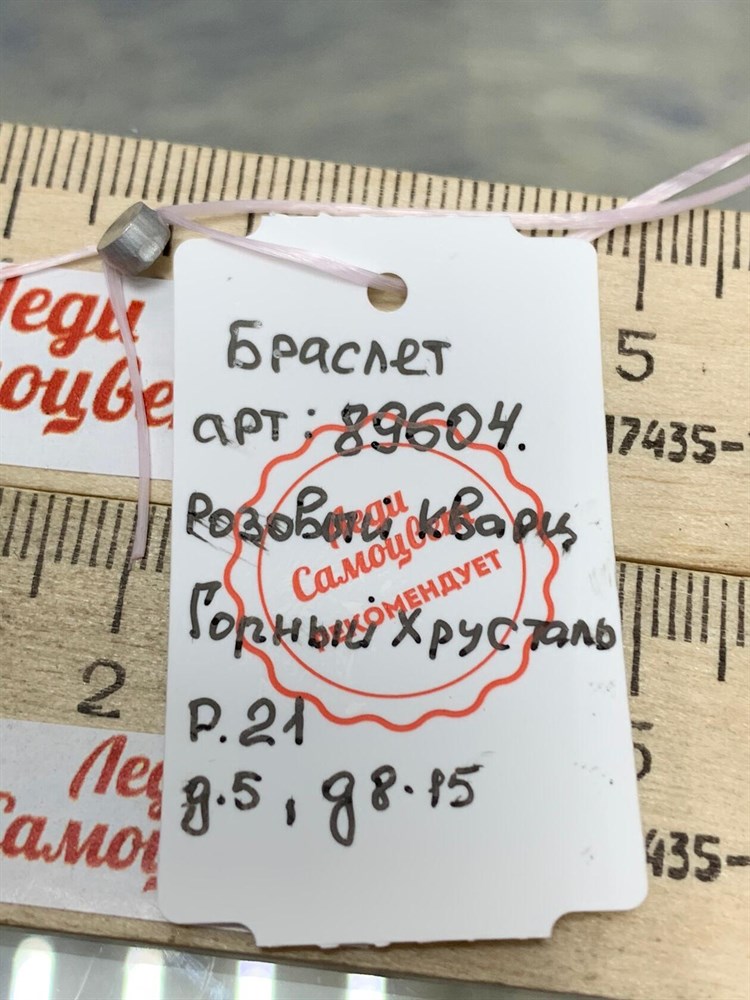 Браслет
арт: 89604.
Розовый кварц
Горный Хрусталь
Р.21
д.5, д8.15
Леди
Самоцвет
РЕКОМЕНДУЕТ
Леди
5
17435-
2
5
435-